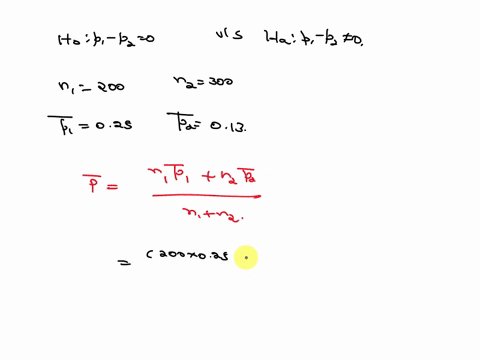 H₀ : p₁-p₂=0 v/s Ha : p₁-p₂≠0.
n₁=200 n₂=300
p̅₁=0.25 p̅₂=0.13.
p̅ = n₁p̅₁+n₂p̅₂
n₁+n₂.
= (200×0.25